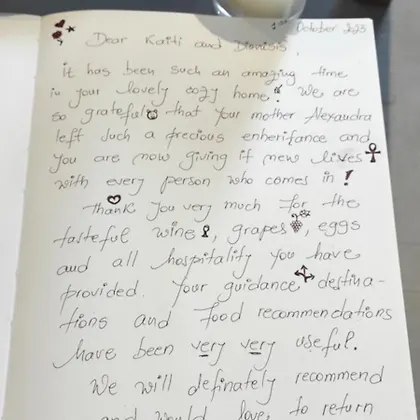 1st October 2023
Dear Kaiti and Dionisis,
it has been such an amazing time
in your lovely cozy home! We are
so grateful that your mother Alexandra
left such a precious enherifance and
you are now giving it new lives
with every person who comes in!
Thank you very much for the
tasteful wine, grapes, eggs
and all hospitality you have
provided. Your guidance, destina-
tions and food recommendations
have been very very useful.
We will definately recommend
and would love to return